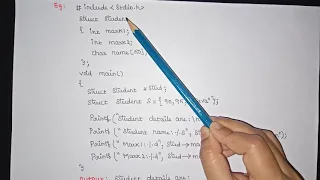 Eg: # include < stdio.h>
struct student
{ int mark1;
int mark2;
char name[
};
void main()
{
struct student * stud;
struct student S = { 90, 95,
Printf ("student details are: \n
Printf (" Student name: %s",
Printf (" Mark1: %d", stud→
Printf (" Mark2: %d", stud→
}
output: student details are: